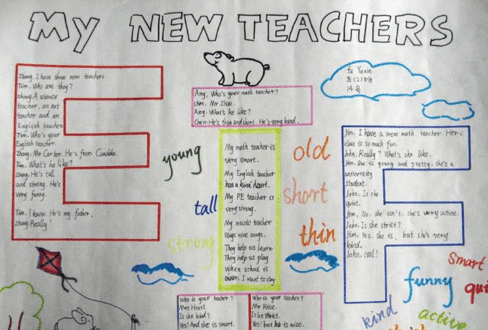 My NEW TEACHERS
Zhang: I have three new teachers
Tim: Who are they?
Zhang: A science
teacher, an art
teacher and an
English teacher.
Tim: Who's your
English teacher?
Zhang: Mr Carter. He's from Canada
Tim: What's he like?
Zhang: He's tall
and strong. He's
very funny.
Tim: I know. He's my father.
Zhang: Really!
Amy: Who's your math teacher?
Chen: Mr Zhao.
Amy: What's he like?
Chen: He's thin and short. He's very kind.
Yu Yuxin
young
tall
strong
My math teacher is
very smart.
My English teacher
has a kind heart.
My PE teacher is
very strong.
My music teacher
sings nice songs.
They help us learn
They help us play
When school is
over, I want to stay
old
short
thin
Jim: I have a new math teacher. Her
class is so much fun.
John: Really? What's she like.
Jim: She is young and pretty. she's a
university
student.
John: Is she
quiet.
Jim: No, she isn't. she's very active.
John: Is she strict?
Jim: Yes, she is, but she's very
kind.
John: cool!
Smart
funny
qui
kind
active
Who is your teacher?
Miss Heart.
Is she kind?
Yes! And she is smart.
Who is your teacher?
Miss Rice.
Is she strict.
No! but he is nice.